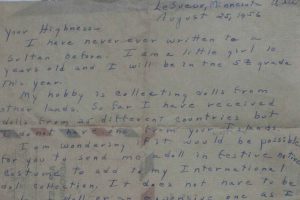 LeSueur, Minnesota
August 25, 1956
Your Highness:
I have never ever written to a
Sultan before. I am a little girl 10
years old and I will be in the 5th grade
this year.
My hobby is collecting dolls from
other lands. So far I have received
dolls from 25 different countries but
I do not have one from your Islands.
I am wondering if it would be possible
for you to send me a doll in festive native
costume to add to my International
doll collection. It does not have to be
doll or an expensive one as I